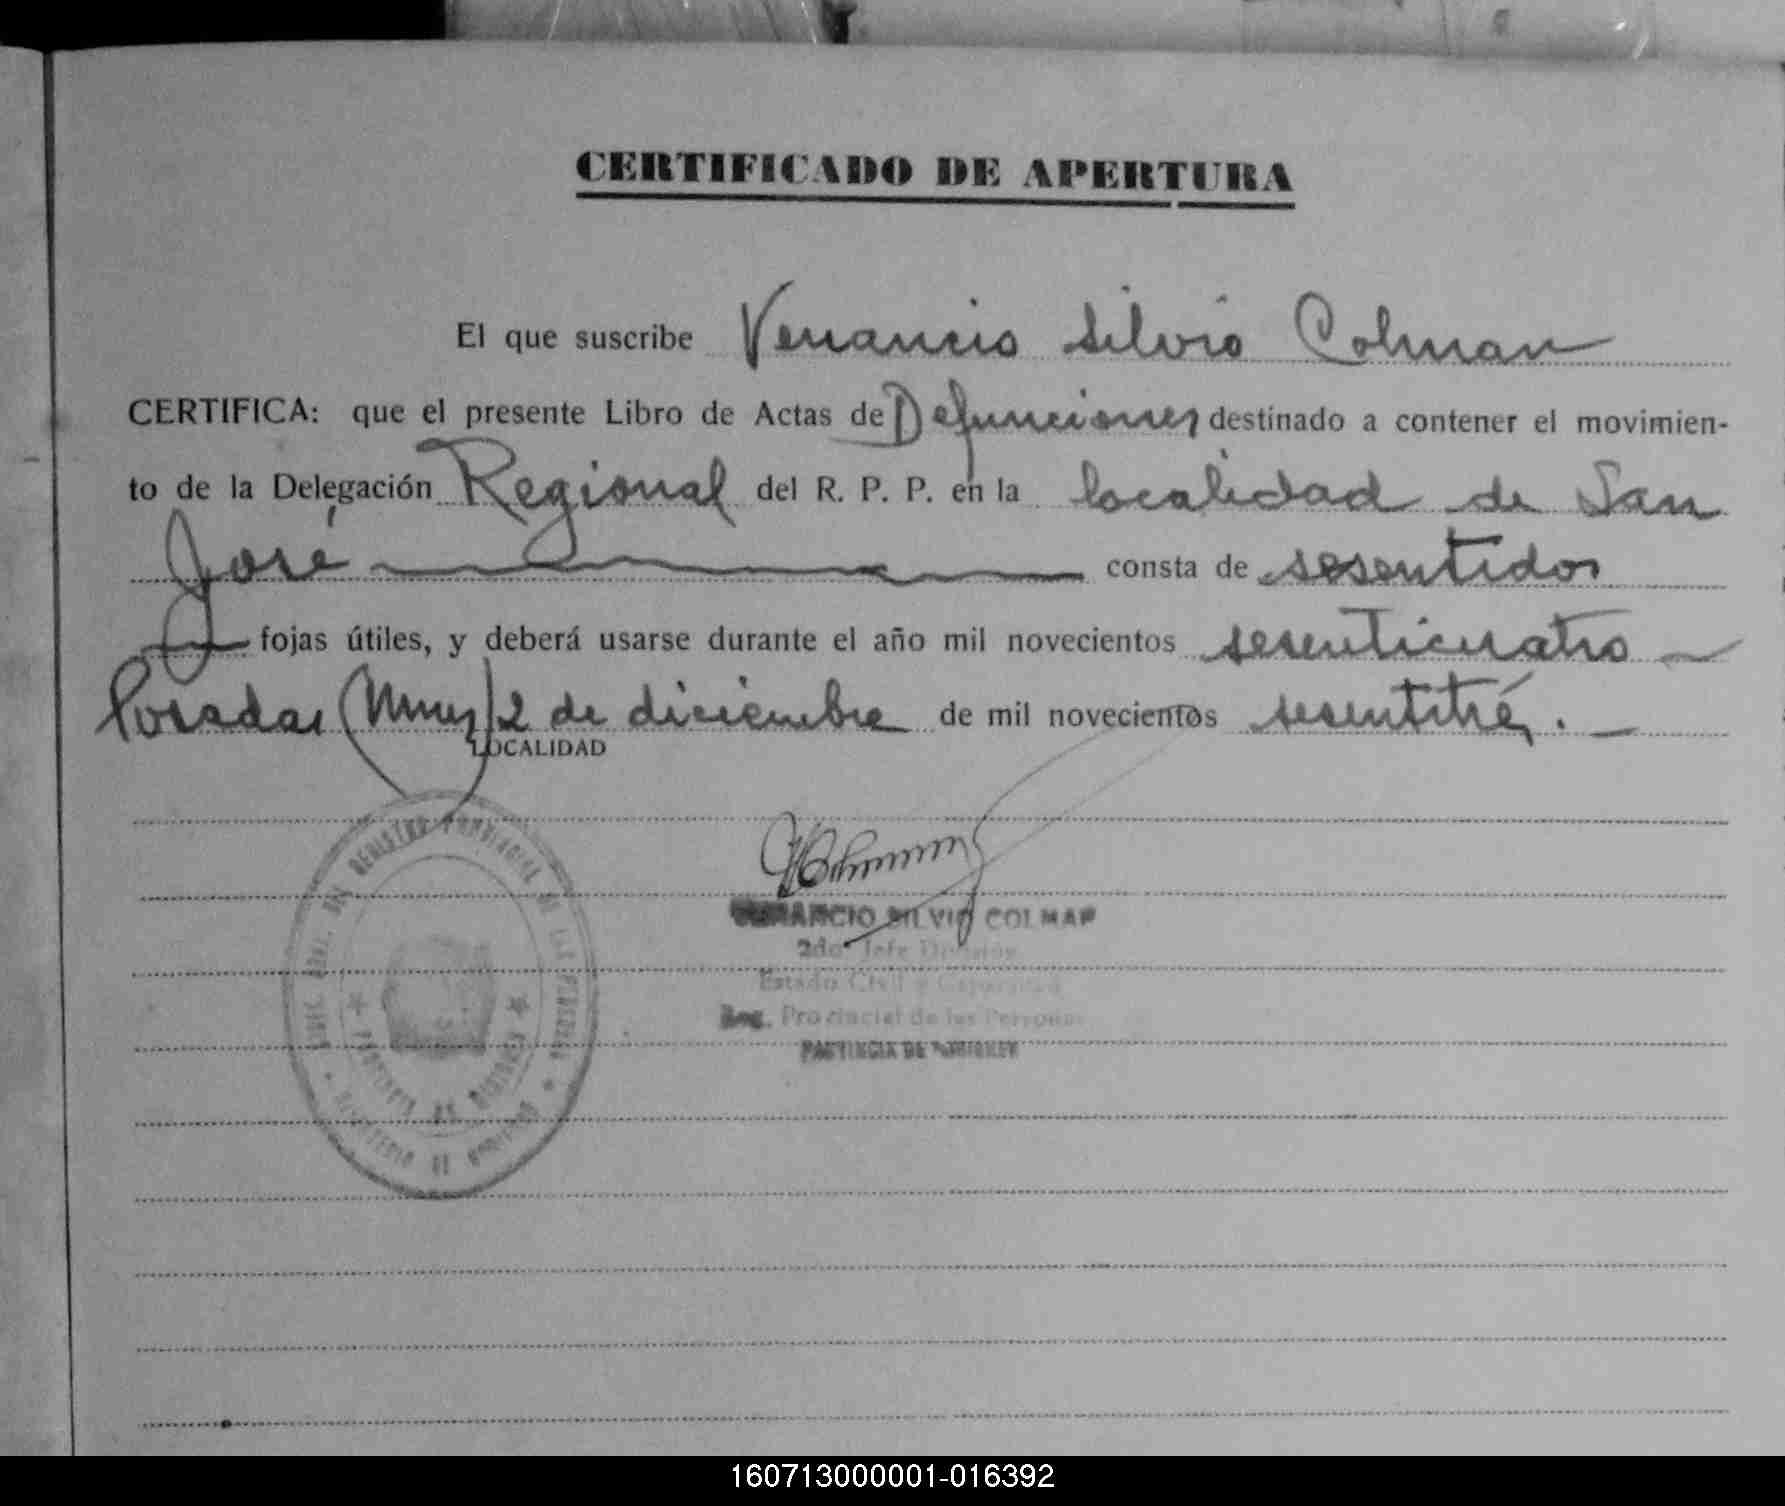 CERTIFICADO DE APERTURA
El que suscribe Venancio Silvio Colman
CERTIFICA: que el presente Libro de Actas de Defunciones destinado a contener el movimien-
to de la Delegación Regional del R. P. P. en la localidad de San
José consta de sesentidos
fojas útiles, y deberá usarse durante el año mil novecientos sesenticuatro
Posadas (Mnes) 2 de diciembre de mil novecientos sesentitré.
LOCALIDAD
VENANCIO SILVIO COLMAN
2do Jefe División
Estado Civil y Capacidad
Reg. Provincial de las Personas
PROVINCIA DE MISIONES
DIREC. GRAL. DEL REGISTRO PROVINCIAL DE LAS PERSONAS
PROVINCIA DE MISIONES
MINISTERIO DE GOBIERNO
160713000001-016392